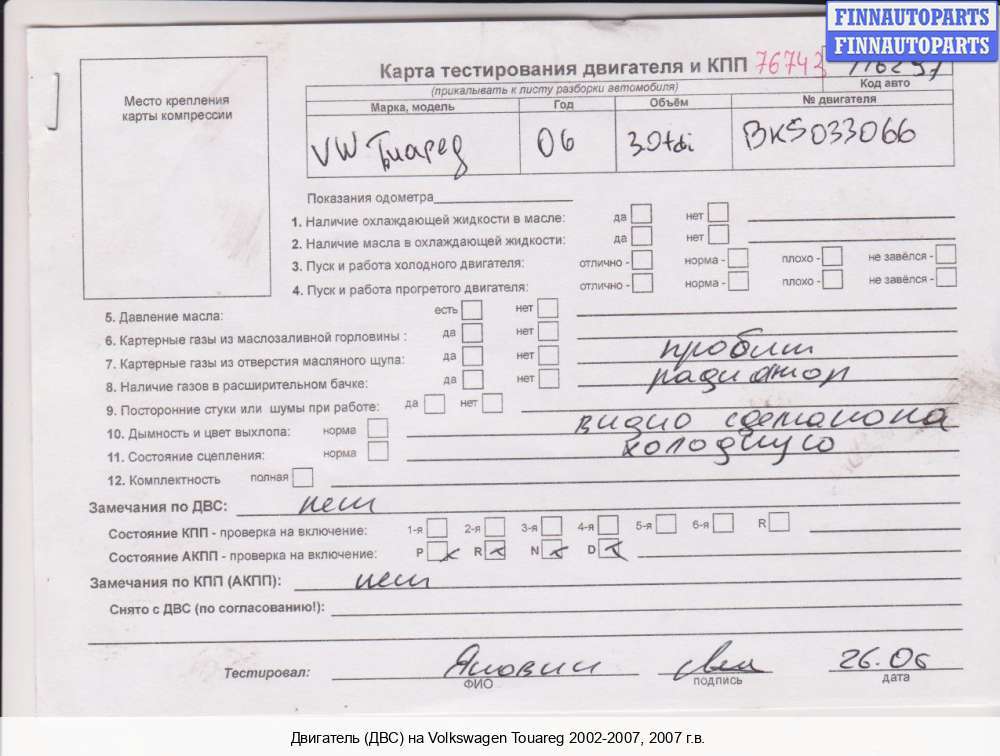 FINNAUTOPARTS
FINNAUTOPARTS
Карта тестирования двигателя и КПП 76743
Код авто
(прикалывать к листу разборки автомобиля)
Место крепления
карты компрессии
Марка, модель Год Объём № двигателя
VW Туарег 06 3.0tdi BKS033066
Показания одометра
1. Наличие охлаждающей жидкости в масле: да нет
2. Наличие масла в охлаждающей жидкости: да нет
3. Пуск и работа холодного двигателя: отлично - норма - плохо - не завёлся -
4. Пуск и работа прогретого двигателя: отлично - норма - плохо - не завёлся -
5. Давление масла: есть нет
6. Картерные газы из маслозаливной горловины : да нет
7. Картерные газы из отверстия масляного щупа: да нет пробит
8. Наличие газов в расширительном бачке: да нет радиатор
9. Посторонние стуки или шумы при работе: да нет
10. Дымность и цвет выхлопа: норма видио сделано на
11. Состояние сцепления: норма холодную
12. Комплектность полная
Замечания по ДВС: нет
Состояние КПП - проверка на включение: 1-я 2-я 3-я 4-я 5-я 6-я R
Состояние АКПП - проверка на включение: P R N D
Замечания по КПП (АКПП): нет
Снято с ДВС (по согласованию!):
Тестировал: 26.06
ФИО подпись дата
Двигатель (ДВС) на Volkswagen Touareg 2002-2007, 2007 г.в.